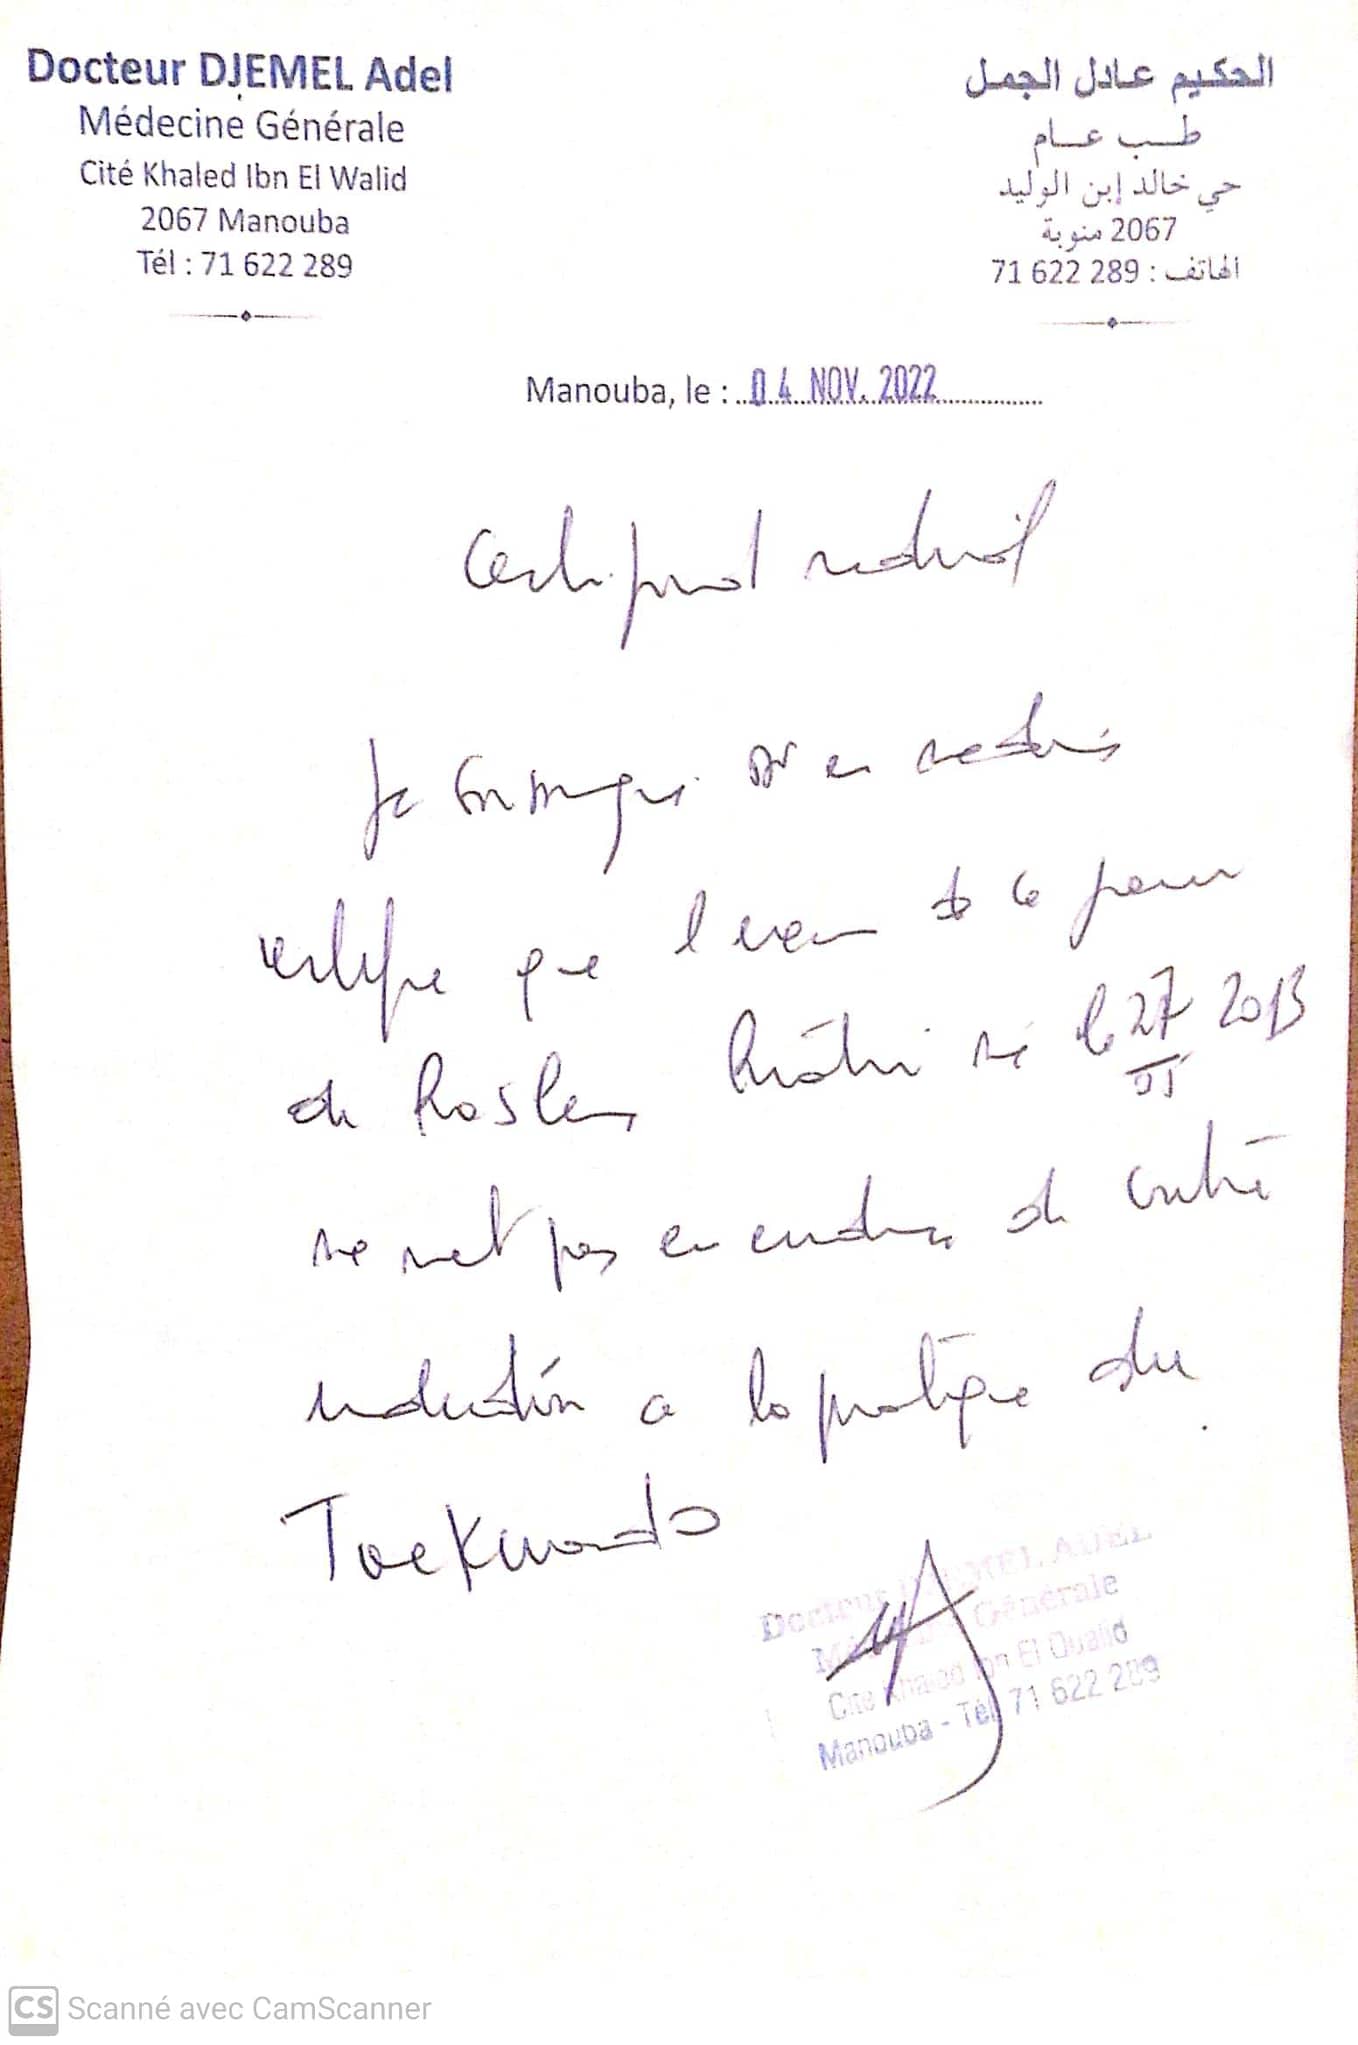 Docteur DJEMEL Adel
Médecine Générale
Cité Khaled Ibn El Walid
2067 Manouba
Tél : 71 622 289
الحكيم عادل الجمل
طب عام
حي خالد إبن الوليد
2067 منوبة
الهاتف : 71 622 289
Manouba, le : 04 NOV. 2022
Certificat médical
Je soussigné Dr en médecine
certifie que l'examen de ce jour
de Roslen né le 27 2013
ne met pas en évidence de contre
indication a la pratique du
Taekwondo
Docteur DJEMEL ADEL
Médecine Générale
Cité Khaled Ibn El Oualid
Manouba - Tél 71 622 289
CS Scanné avec CamScanner